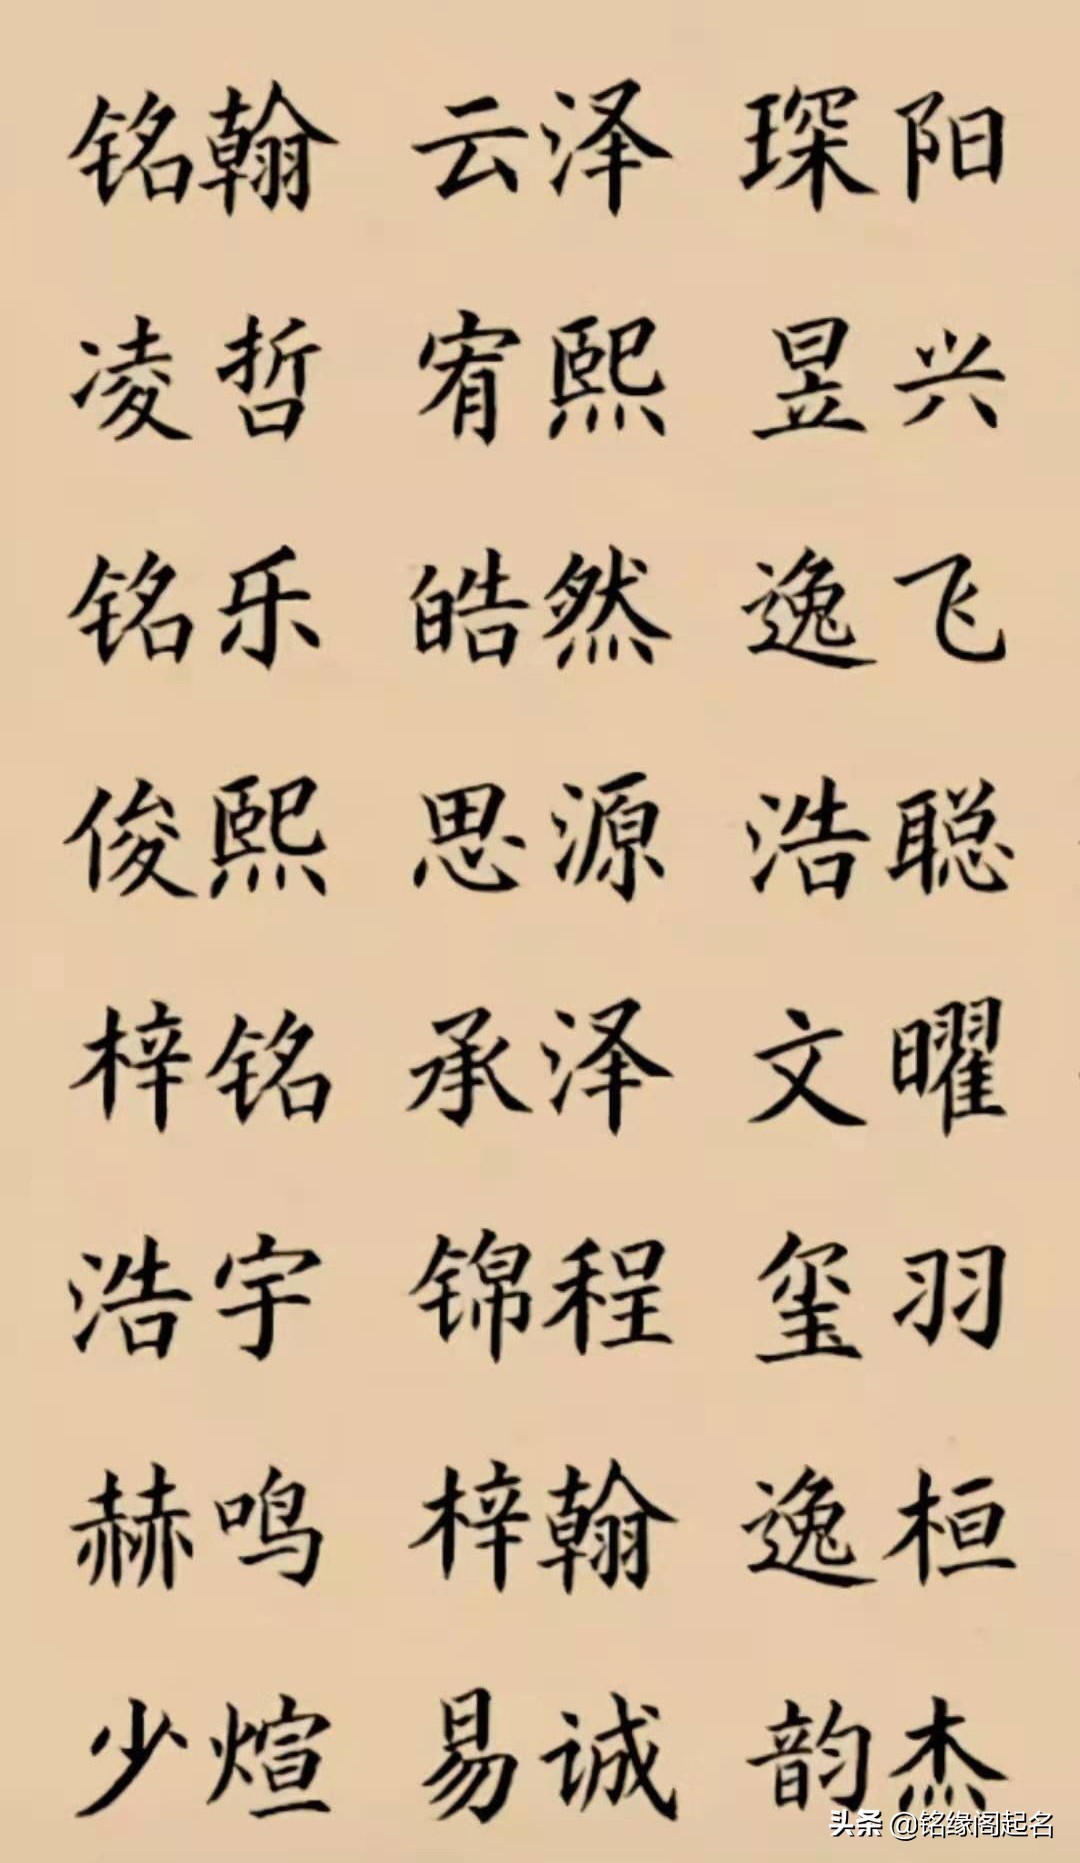 铭翰 云泽 琛阳
凌哲 宥熙 昱兴
铭乐 皓然 逸飞
俊熙 思源 浩聪
梓铭 承泽 文曜
浩宇 锦程 玺羽
赫鸣 梓翰 逸桓
少煊 易诚 韵杰
头条 @铭缘阁起名